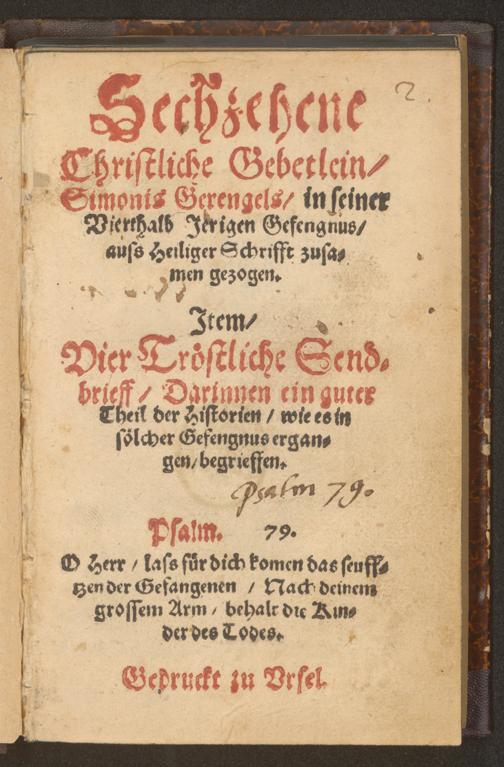 2.
Sechzehene
Christliche Gebetlein/
Simonis Gerengels/ in seiner
Vierthalb Jerigen Gefengnus/
auss Heiliger Schrifft zusa⸗
men gezogen.
Item/
Vier Tröstliche Send⸗
brieff/ Darinnen ein guter
Theil der Historien/ wie es in
sölcher Gefengnus ergan⸗
gen/ begrieffen.
Psalm 79.
Psalm. 79.
O Herr/ lass für dich komen das seuff⸗
tzen der Gefangenen/ Nach deinem
grossem Arm/ behalt die Kin⸗
der des Todes.
Gedruckt zu Vrsel.